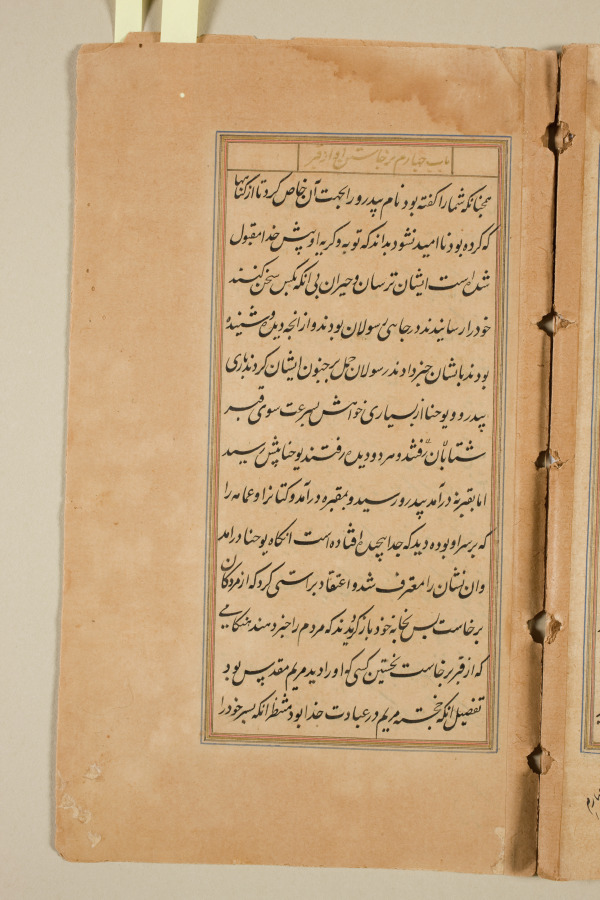 باب چهارم برخاستن او از قبر
همچنانکه شما را گفته بود نام پیدرو را بجهت آن خاص کرد تا از گناهی
که کرده بود نا امید نشود بداند که توبه و گریه او پیش خدا مقبول
شده است ایشان ترسان و حیران بی انکه بکس سخن کنند
خود را رسانیدند در جای که رسولان بودند و از انچه دیده و شنیده
بودند بایشان خبر دادند رسولان حمل بر جنون ایشان کردند باری
پیدرو و یوحنا از بسیاری خواهش بسرعت سوی قبر
شتابان رفتند و هر دو دیده رفتند یوحنا پیش رسید
اما بقبر نه در آمد پیدرو رسید و بمقبره در آمد و کتانرا و عمامه را
که بر سر او بوده دید که جدا پیچیده افتاده است انگاه یوحنا درامد
وان نشان را معترف شد و اعتقاد براستی کرد که از مردگان
برخاست پس بخانه خود باز گردیدند که مردم را خبر دهند هنگامی
که از قبر برخاست نخستین کسی که او را دید مریم مقدس بود
تفصیل انکه خجسته مریم در عبادت خدا بود منتظر انکه پسر خود را